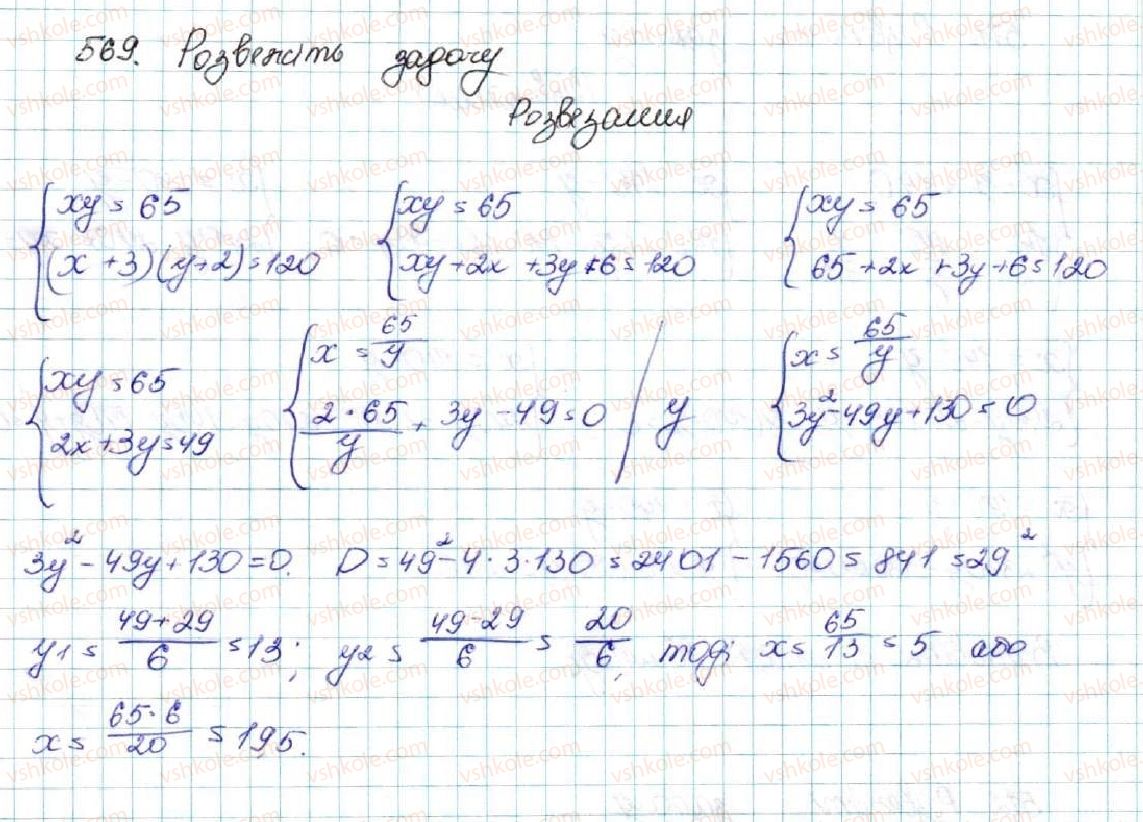 569. Розвежіть задачу
Розвезання
{ xy = 65 { xy = 65 { xy = 65
(x + 3)(y + 2) = 120 xy + 2x + 3y + 6 = 120 65 + 2x + 3y + 6 = 120
{ xy = 65 { x = 65/y { x = 65/y
2x + 3y = 49 2·65/y + 3y - 49 = 0 / y 3y² - 49y + 130 = 0
3y² - 49y + 130 = 0. D = 49² - 4·3·130 = 2401 - 1560 = 841 = 29²
y1 = 49+29/6 = 13; y2 = 49-29/6 = 20/6, тоді x = 65/13 = 5 або
x = 65·6/20 = 19,5.
vshkole.com